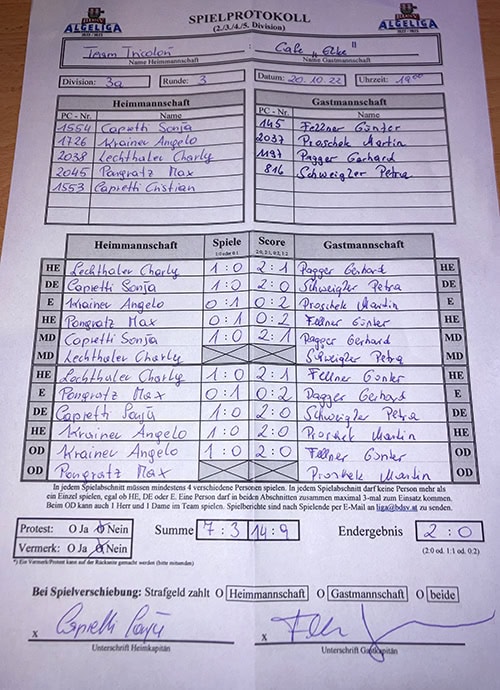 BDSV ALGELIGA 2022 / 2023 SPIELPROTOKOLL BDSV ALGELIGA 2022 / 2023
(2./3./4./5. Division)
Team Tricolori : Cafe "Elke"
Name Heimmannschaft Name Gastmannschaft
Division: 3a Runde: 3 Datum: 20.10.22 Uhrzeit: 19 00
Heimmannschaft Gastmannschaft
PC - Nr. Name PC - Nr. Name
1554 Capretti Sonja 145 Fellner Günter
1726 Krainer Angelo 2037 Proschek Martin
2038 Lechthaler Charly 1197 Pagger Gerhard
2045 Pongratz Max 816 Schweigler Petra
1553 Capretti Cristian
Heimmannschaft Spiele Score Gastmannschaft
1:0 oder 0:1 2:0, 2:1, 0:2, 1:2
HE Lechthaler Charly 1:0 2:1 Pagger Gerhard HE
DE Capretti Sonja 1:0 2:0 Schweigler Petra DE
E Krainer Angelo 0:1 0:2 Proschek Martin E
HE Pongratz Max 0:1 0:2 Fellner Günter HE
MD Capretti Sonja 1:0 2:1 Pagger Gerhard MD
MD Lechthaler Charly Schweigler Petra MD
HE Lechthaler Charly 1:0 2:1 Fellner Günter HE
E Pongratz Max 0:1 0:2 Pagger Gerhard E
DE Capretti Sonja 1:0 2:0 Schweigler Petra DE
HE Krainer Angelo 1:0 2:0 Proschek Martin HE
OD Krainer Angelo 1:0 2:0 Fellner Günter OD
OD Pongratz Max Proschek Martin OD
In jedem Spielabschnitt müssen mindestens 4 verschiedene Personen spielen. In jedem Spielabschnitt darf keine Person mehr als
ein Einzel spielen, egal ob HE, DE oder E. Eine Person darf in beiden Abschnitten zusammen maximal 3-mal zum Einsatz kommen.
Beim OD kann auch 1 Herr und 1 Dame im Team spielen. Spielberichte sind nach Spielende per E-Mail an liga@bdsv.at zu senden.
Protest: O Ja O Nein Summe 7:3 14:9 Endergebnis 2:0
Vermerk: O Ja O Nein (2:0 od. 1:1 od. 0:2)
*) Ein Vermerk/Protest kann auf der Rückseite gemacht werden (bitte mitsenden)
Bei Spielverschiebung: Strafgeld zahlt O Heimmannschaft O Gastmannschaft O beide
x Capretti Sonja x
Unterschrift Heimkapitän Unterschrift Gastkapitän